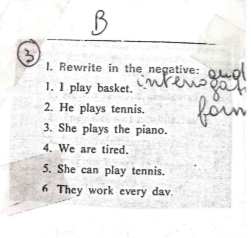 B
3
1. Rewrite in the negative: and
1. I play basket. interrogat
form
2. He plays tennis.
3. She plays the piano.
4. We are tired.
5. She can play tennis.
6 They work every day.